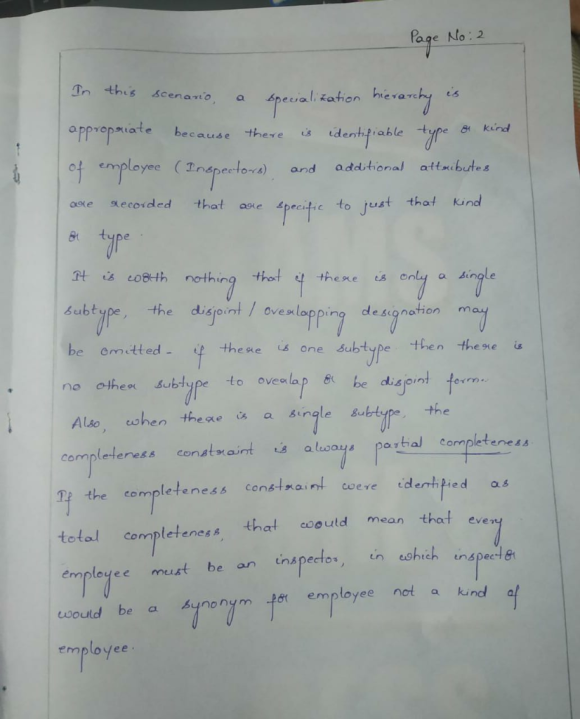 Page No: 2
In this scenario, a specialization hierarchy is
appropriate because there is identifiable type or kind
of employee (Inspectors), and additional attributes
are recorded that are specific to just that kind
or type.
It is worth nothing that if there is only a single
subtype, the disjoint / overlapping designation may
be omitted - if there is one subtype then there is
no other subtype to overlap or be disjoint form.
Also, when there is a single subtype, the
completeness constraint is always partial completeness
If the completeness constraint were identified as
total completeness, that would mean that every
employee must be an inspector, in which inspector
would be a synonym for employee not a kind of
employee.